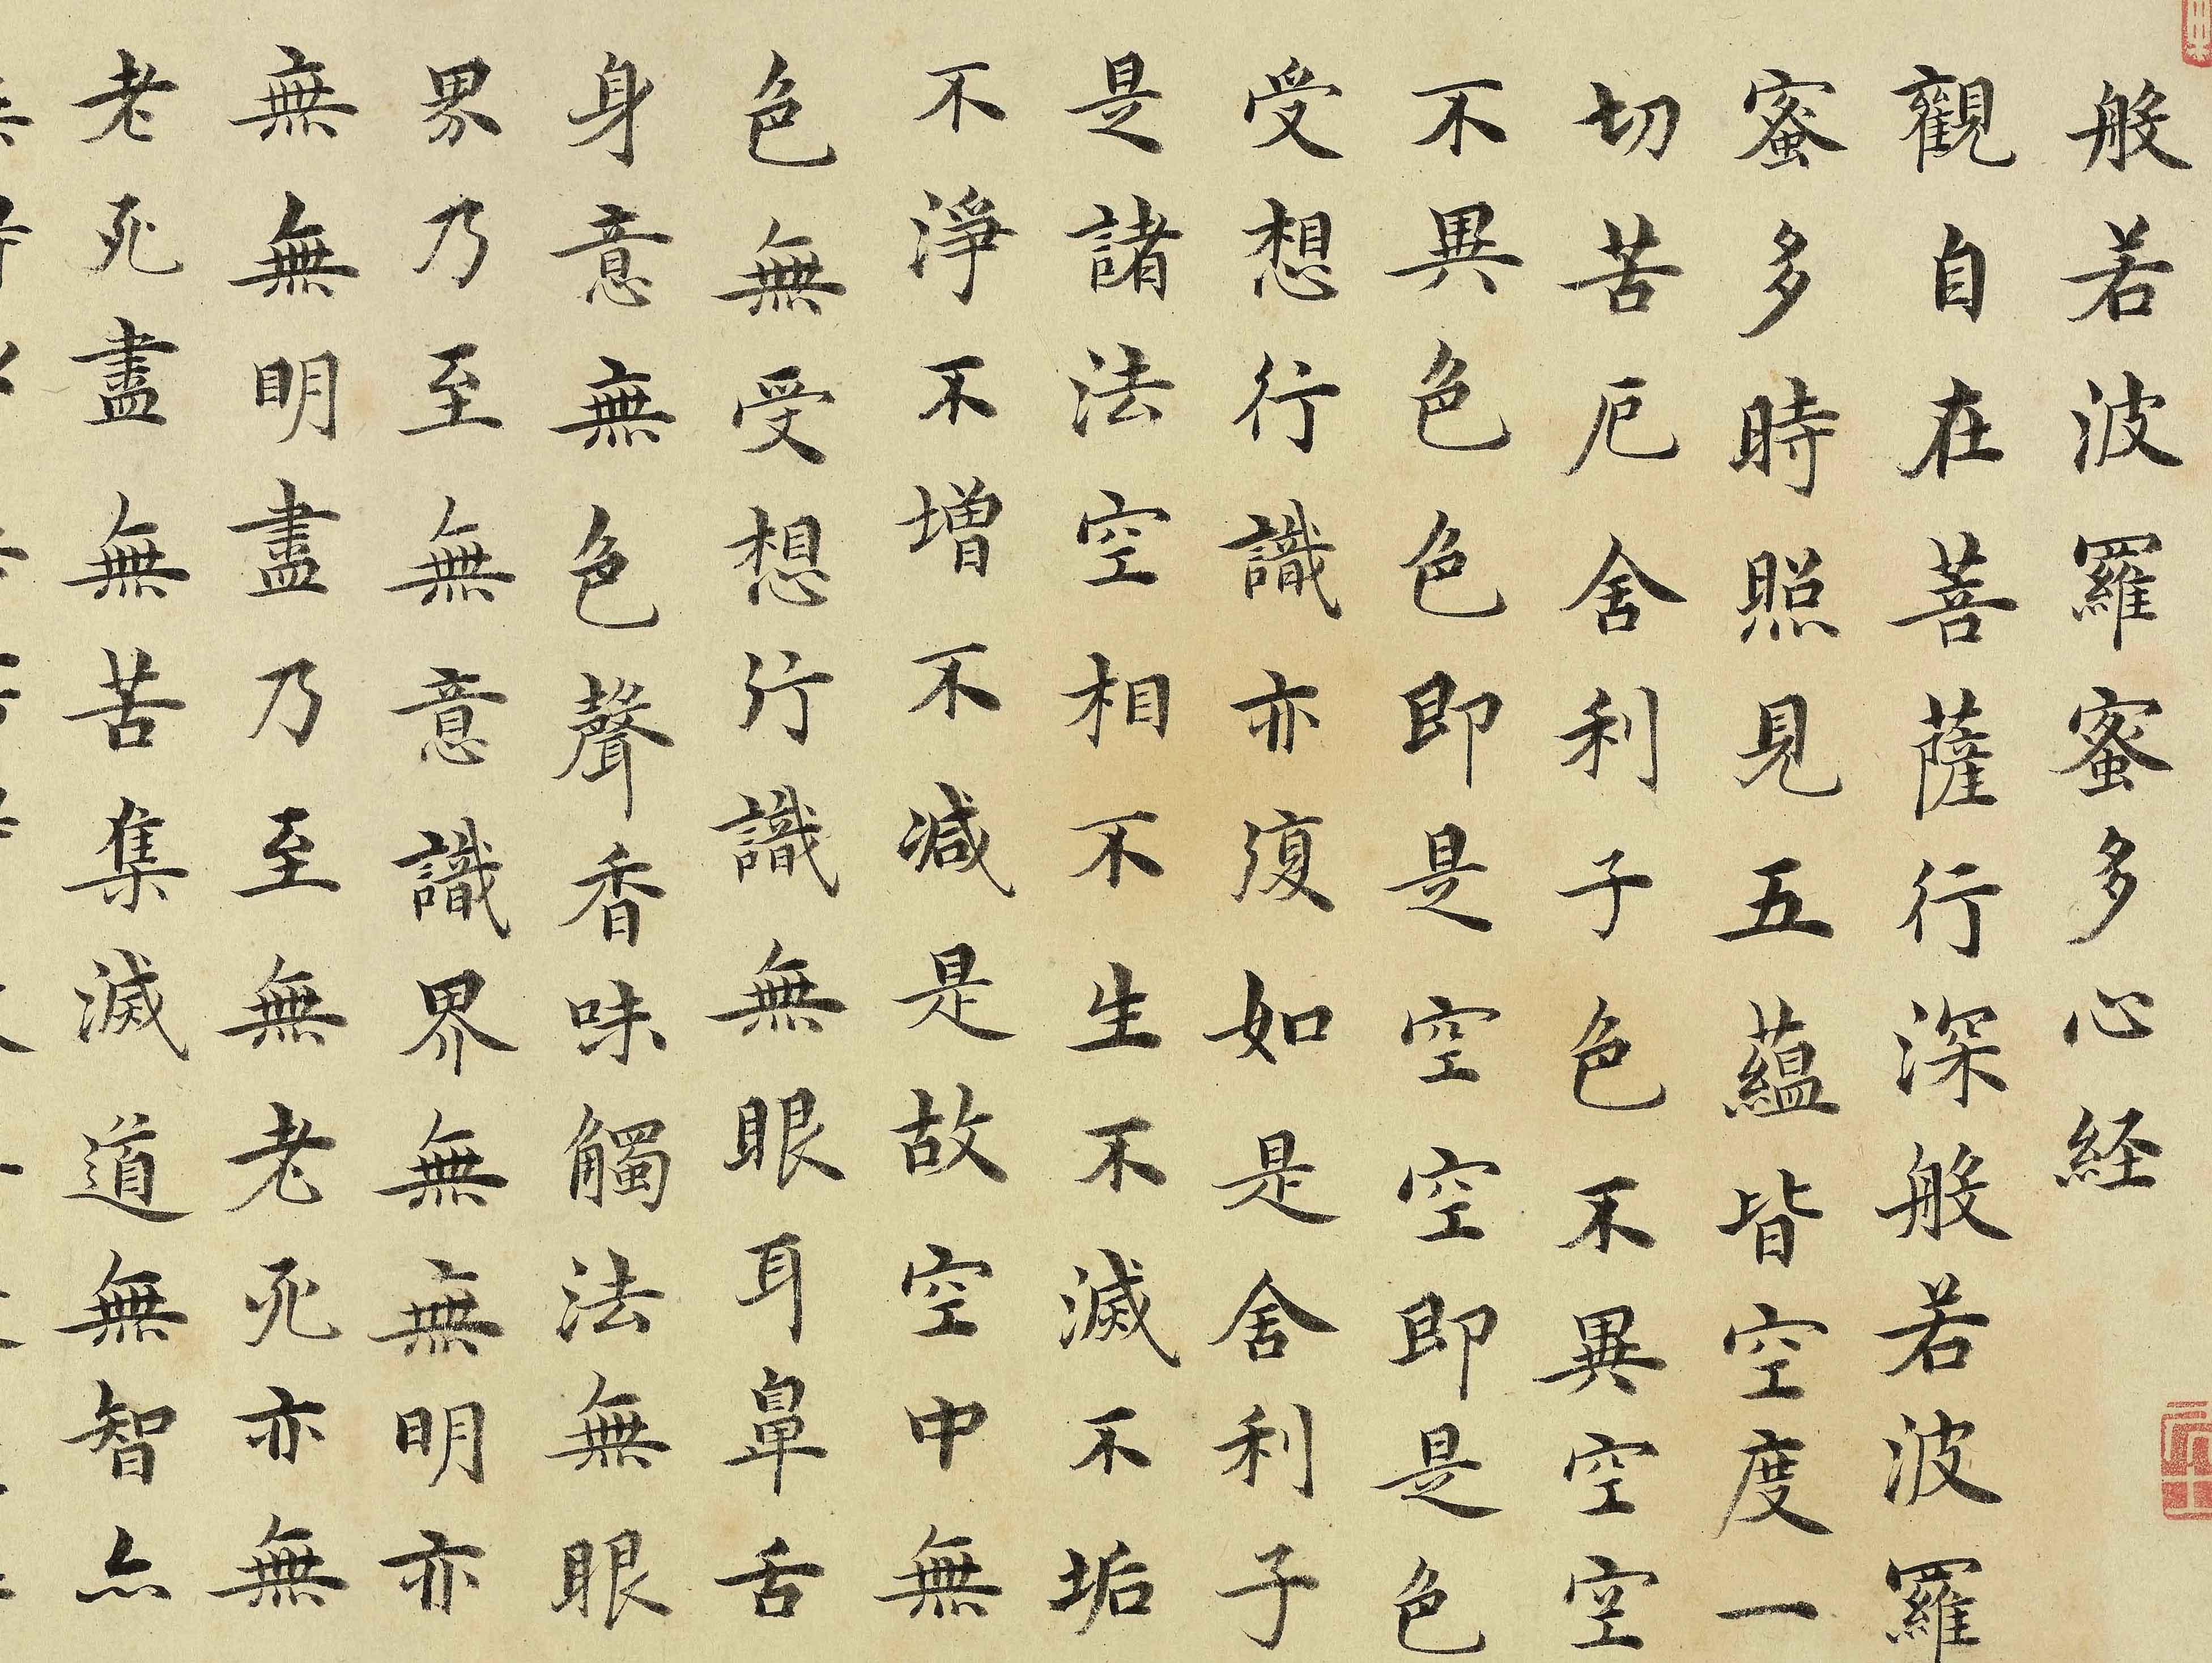 般若波羅蜜多心経
觀自在菩薩行深般若波羅
蜜多時照見五蘊皆空度一
切苦厄舍利子色不異空空
不異色色即是空空即是色
受想行識亦復如是舍利子
是諸法空相不生不滅不垢
不淨不增不減是故空中無
色無受想行識無眼耳鼻舌
身意無色聲香味觸法無眼
界乃至無意識界無無明亦
無無明盡乃至無老死亦無
老死盡無苦集滅道無智亦